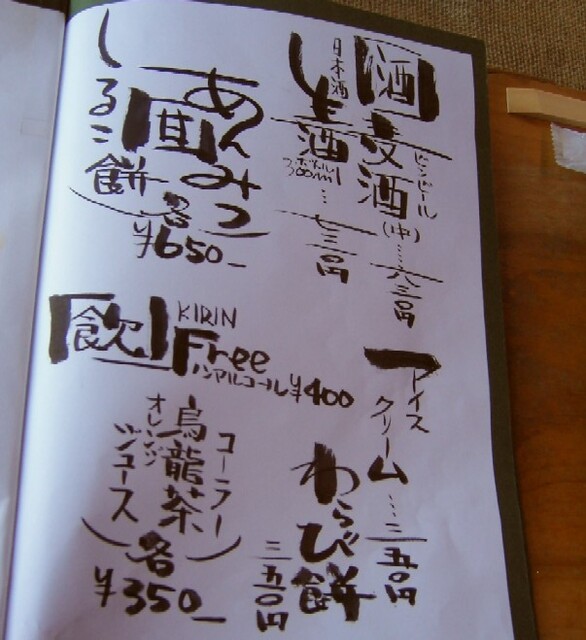 酒
麦酒
ビンビール
(中)……六三〇円
日本酒
生酒
ボトル
300ml…七三〇円
甘
あんみつ
しるこ餅
各
¥650_
アイスクリーム…二五〇円
わらび餅
三五〇円
飲
KIRIN
Free
ノンアルコール¥400
コーラー
烏龍茶
オレンジ
ジュース
各
¥350_